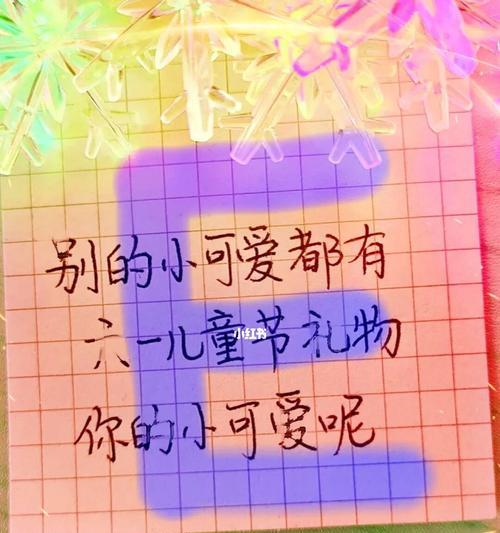 别的小可爱都有
六一儿童节礼物
小红书
你的小可爱呢
E